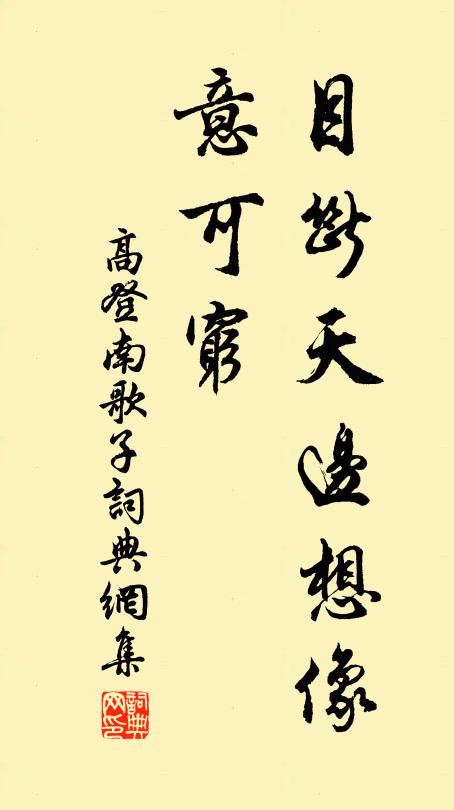 目斷天邊想像
意可窮
高登南歌子詞典網集
詞典网印